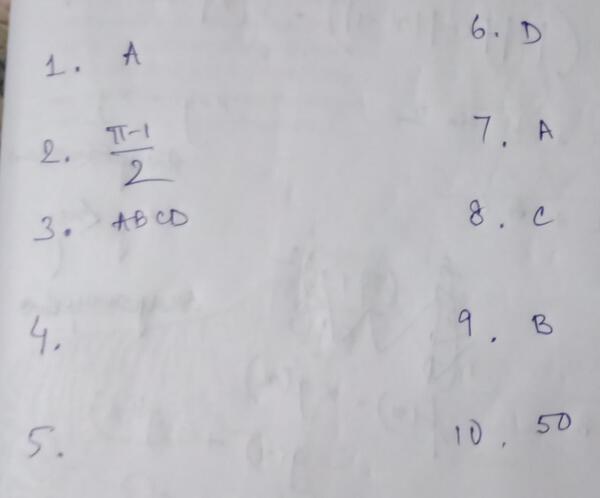 1. A
2. π-1/2
3. ABCD
4.
5.
6. D
7. A
8. C
9. B
10. 50